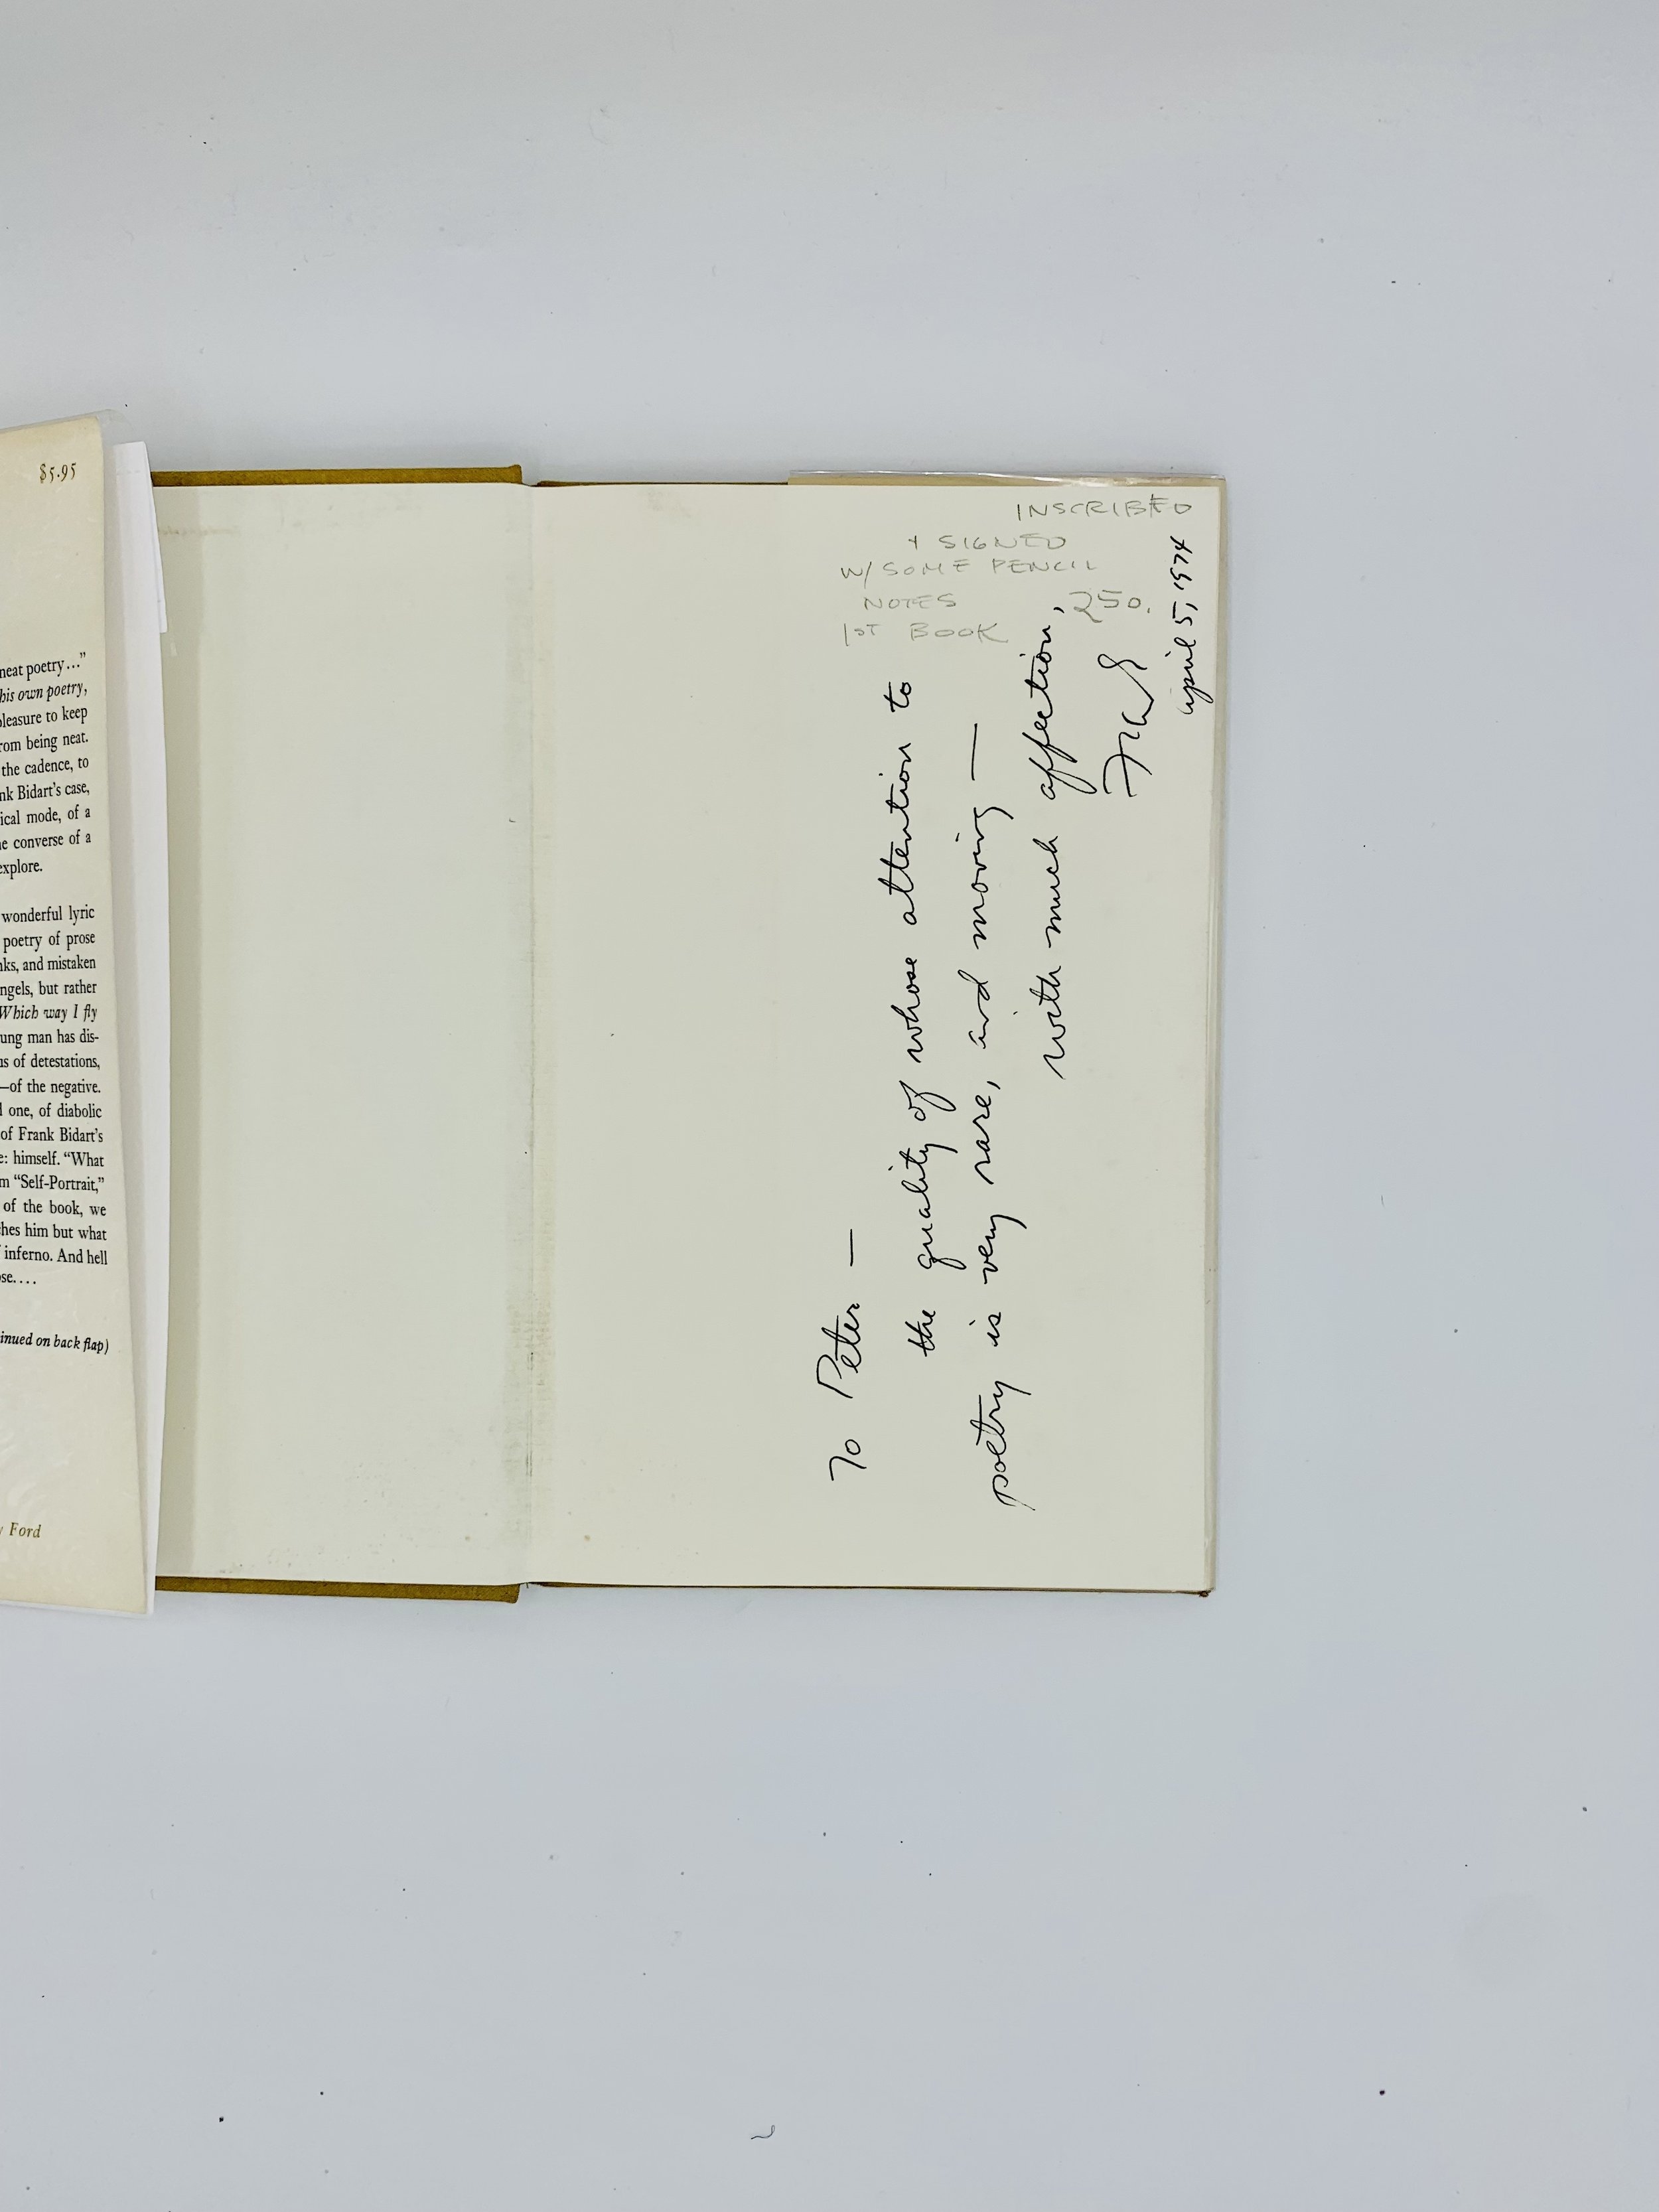 $5.95
neat poetry…”
his own poetry,
pleasure to keep
from being neat.
the cadence, to
nk Bidart's case,
ical mode, of a
e converse of a
explore.
wonderful lyric
poetry of prose
nks, and mistaken
ngels, but rather
Which way I fly
ung man has dis-
us of detestations,
—of the negative.
l one, of diabolic
of Frank Bidart's
e: himself. “What
m “Self-Portrait,”
of the book, we
hes him but what
inferno. And hell
se....
inued on back flap)
y Ford
INSCRIBED
+ SIGNED
W/ SOME PENCIL
NOTES 250.
1ST BOOK
To Peter —
the quality of whose attention to
poetry is very rare, and moving —
with much affection,
Frank
April 5, 1974